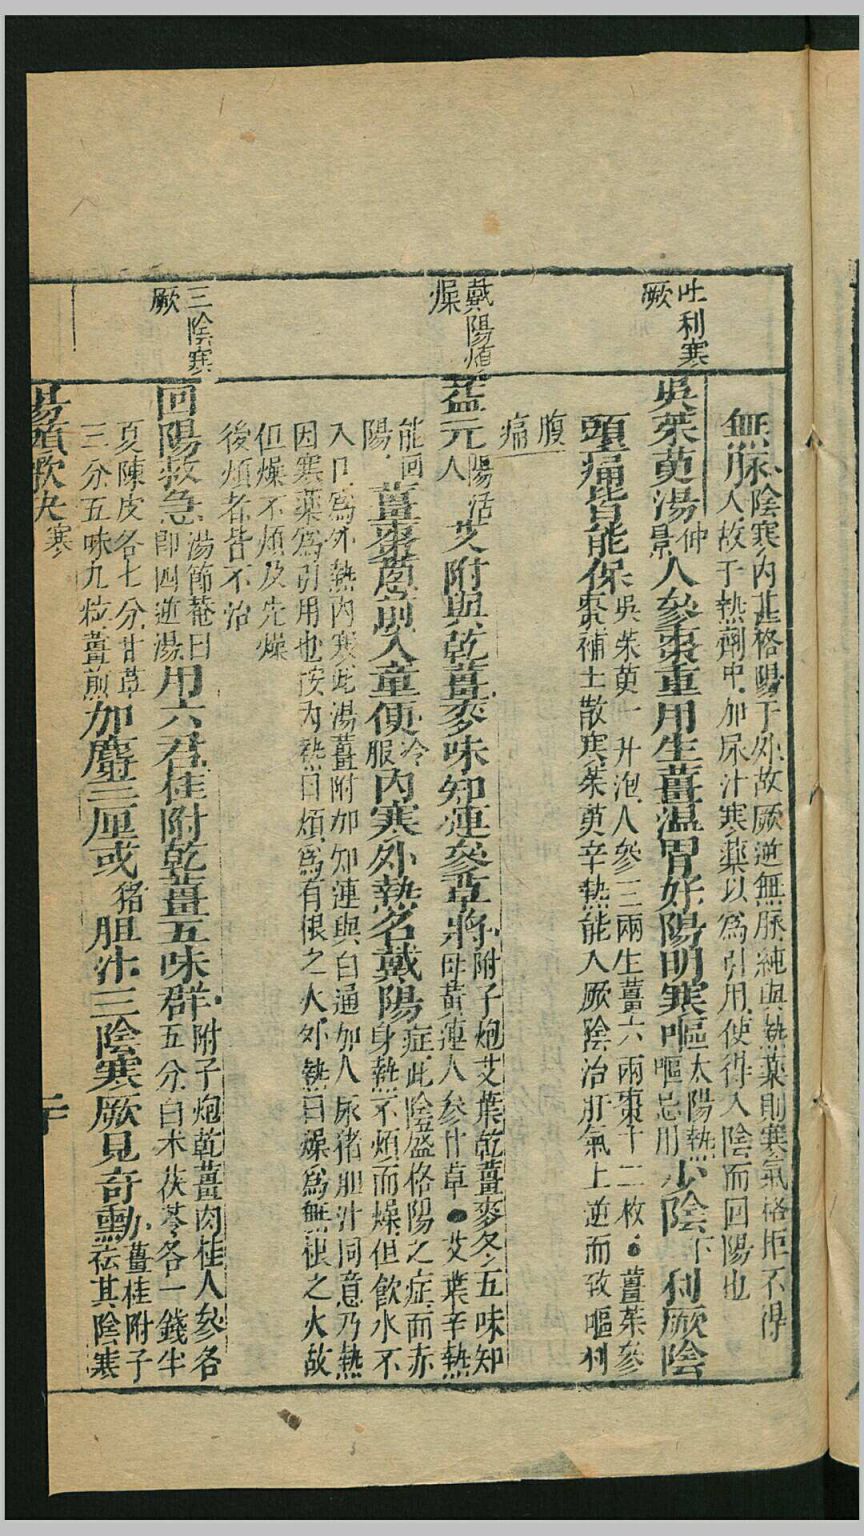 吐利寒
厥
戴陽煩
燥
三陰寒
厥
無脉
陰寒內甚格陽于外故厥逆無脉純與熱藥則寒氣格拒不得
人故于熱劑中加尿汁寒藥以爲引用使得入陰而回陽也
吳茱萸湯仲景人參棗重用生薑溫胃好陽明寒嘔太陽熱嘔忌用少陰下利厥陰
頭痛皆能保
吳茱萸一升泡人參三兩生薑六兩棗十二枚●薑茱參
棗補土散寒茱萸辛熱能入厥陰治肝氣上逆而致嘔利
腹
痛
益元人陽活艾附與乾薑麥味知連參草將
附子炮艾葉乾薑麥冬五味知
母黃連人參甘草●艾葉辛熱
能回
陽
薑棗葱煎入童便冷服內寒外熱名戴陽
症此陰盛格陽之症面赤
身熱不煩而燥但飲水不
入口爲外熱內寒此湯薑附加知連與白通加人尿猪胆汁同意乃熱
因寒藥爲引用也按內熱曰煩爲有根之火外熱曰燥爲無根之火故
但燥不煩及先燥
後煩者皆不治
回陽救急湯節菴曰即四逆湯用六君桂附乾薑五味群
附子炮乾薑肉桂人參各
五分白术茯苓各一錢半
夏陳皮各七分甘草
三分五味九粒薑煎
加麝三厘或猪胆汁三陰寒厥見奇勳
薑桂附子
祛其陰寒
湯頭歌訣
寒
二